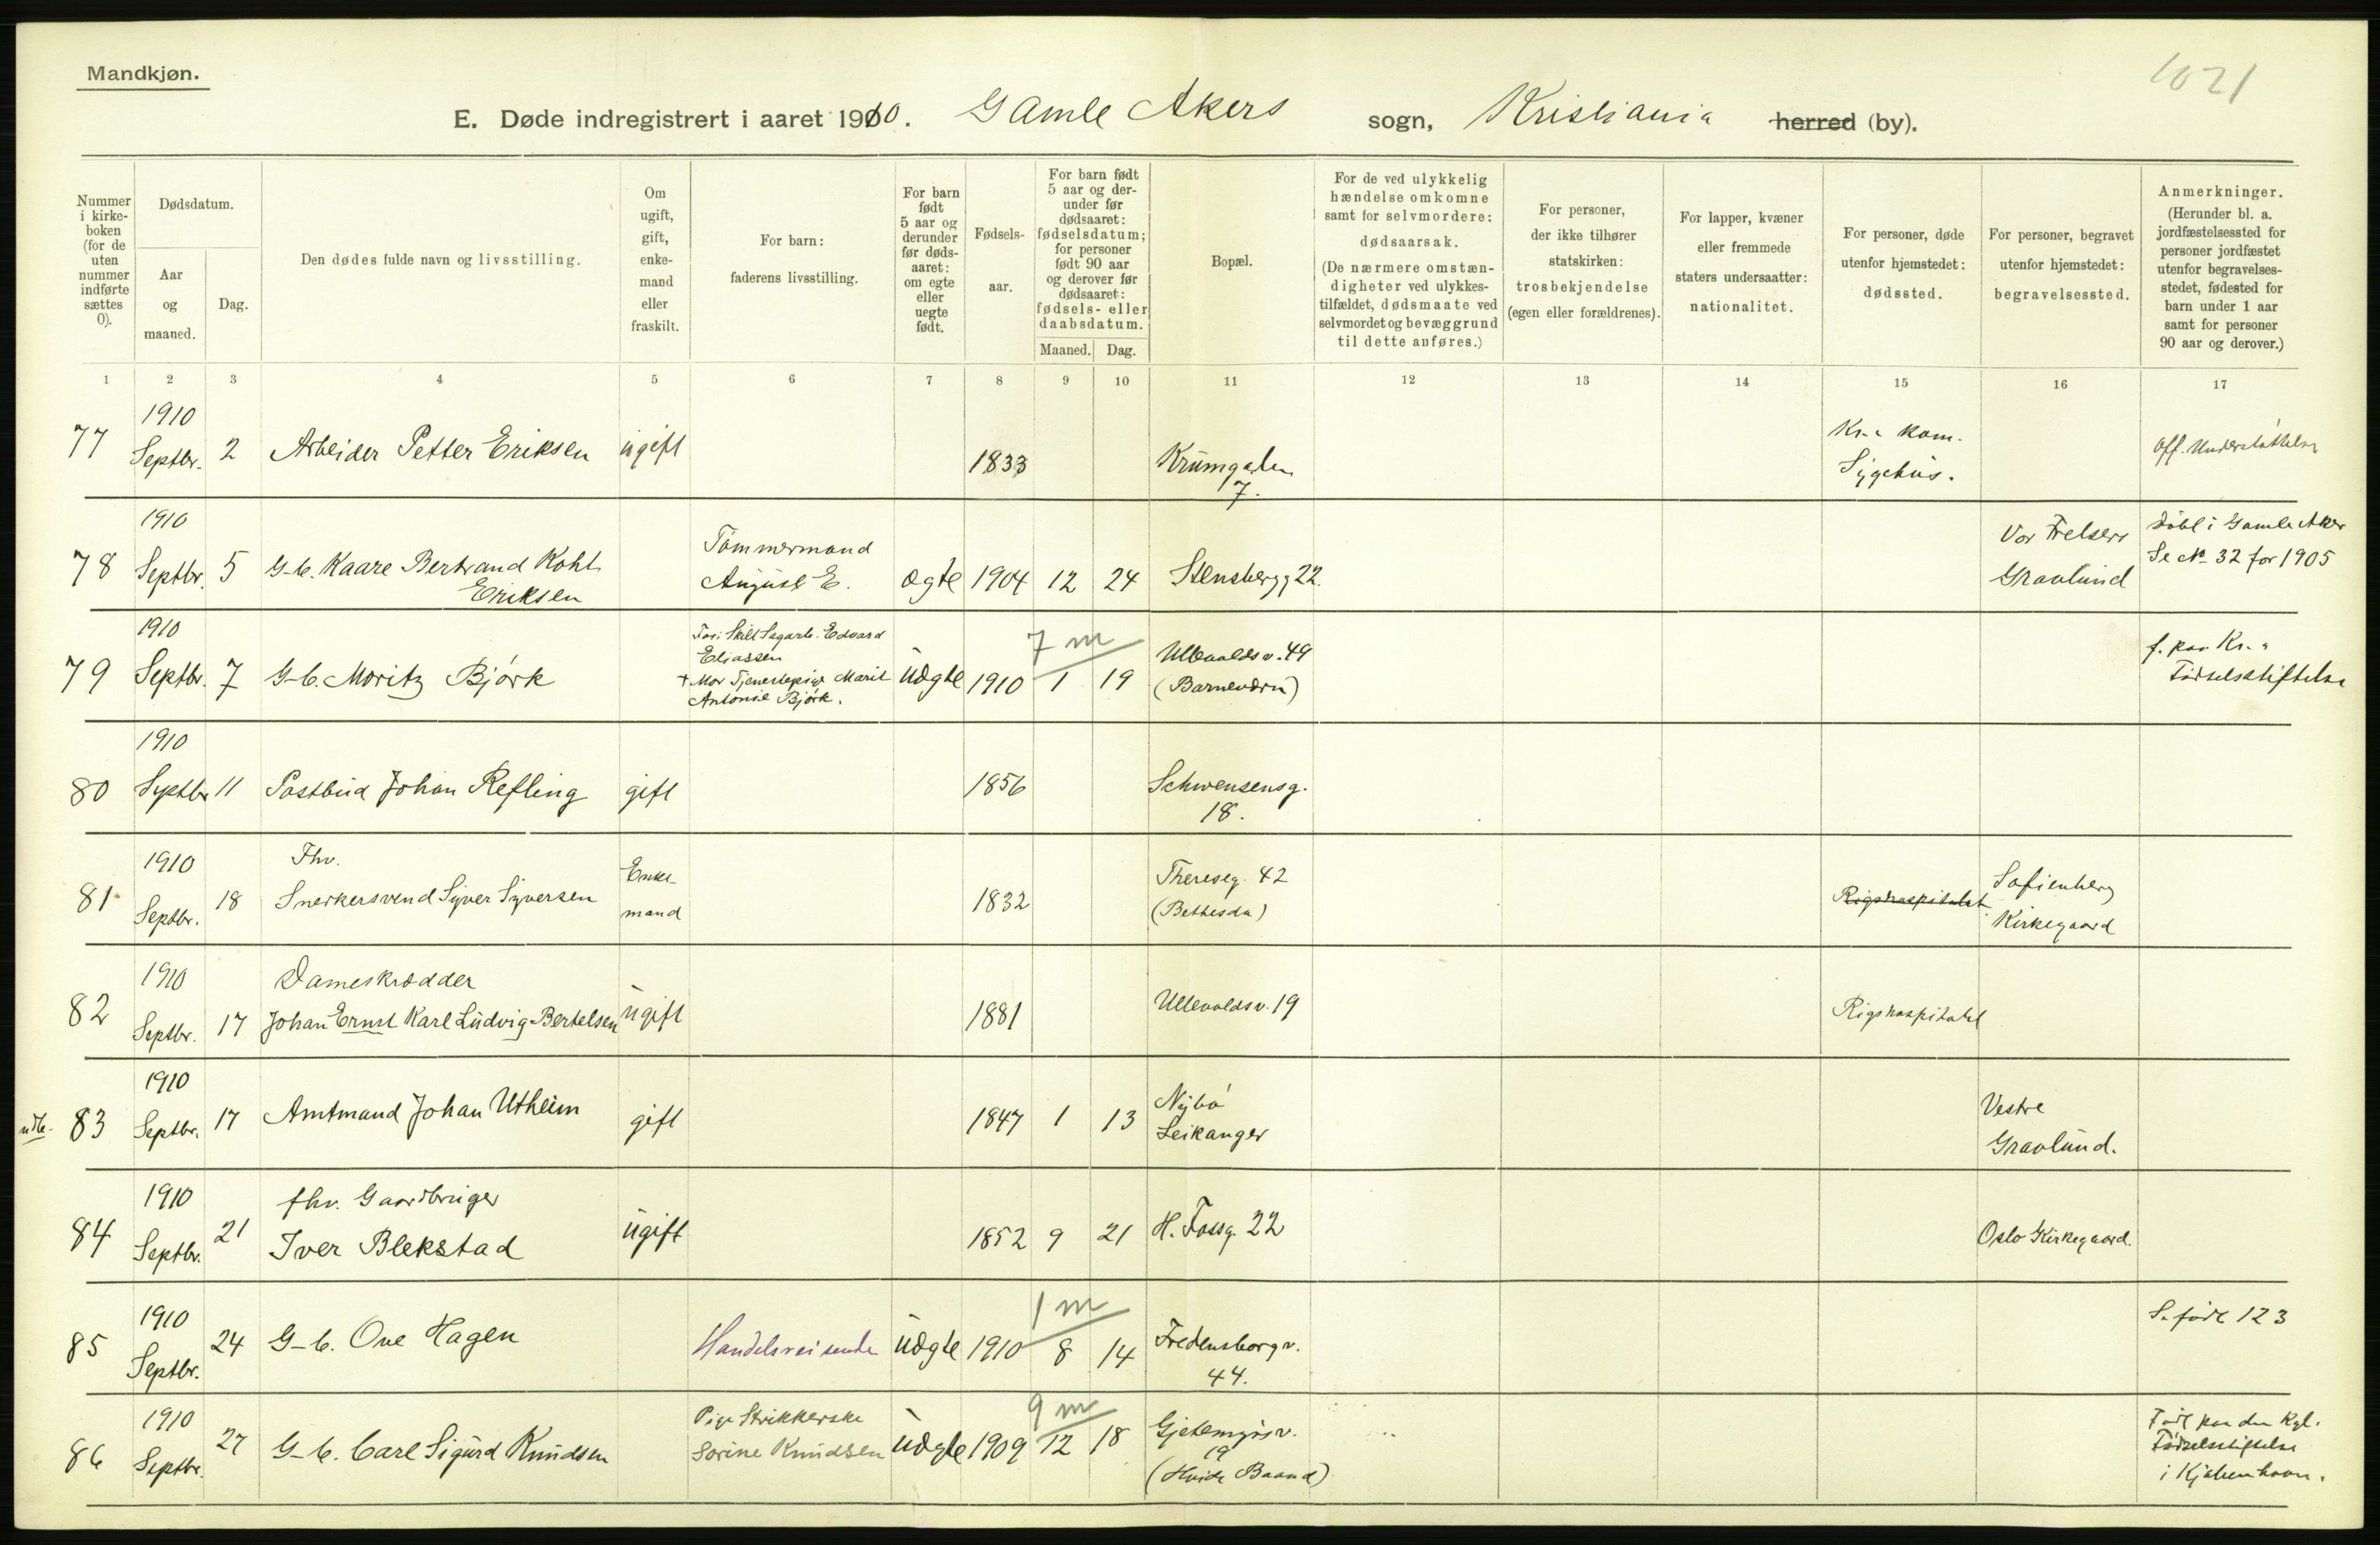 Mandkjøn.
1021
E. Døde indregistrert i aaret 1910. Gamle Akers sogn, Kristiania herred (by).
Nummer i kirke-boken (for de uten nummer indførte sættes 0).
Dødsdatum.
Aar og maaned.
Dag.
Den dødes fulde navn og livsstilling.
Om ugift, gift, enke-mand eller fraskilt.
For barn: faderens livsstilling.
For barn født 5 aar og derunder før døds-aaret: om egte eller uegte født.
Fødsels-aar.
For barn født 5 aar og der-under før dødsaaret: fødselsdatum; for personer født 90 aar og derover før dødsaaret: fødsels- eller daabsdatum.
Maaned. Dag.
Bopæl.
For de ved ulykkelig hændelse omkomne samt for selvmordere: dødsaarsak. (De nærmere omstæn-digheter ved ulykkes-tilfældet, dødsmaate ved selvmordet og bevæggrund til dette anføres.)
For personer, der ikke tilhører statskirken: trosbekjendelse (egen eller forældrenes).
For lapper, kvæner eller fremmede staters undersaatter: nationalitet.
For personer, døde utenfor hjemstedet: dødssted.
For personer, begravet utenfor hjemstedet: begravelsessted.
Anmerkninger. (Herunder bl. a. jordfæstelsessted for personer jordfæstet utenfor begravelses-stedet, fødested for barn under 1 aar samt for personer 90 aar og derover.)
1 2 3 4 5 6 7 8 9 10 11 12 13 14 15 16 17
77 1910 Septbr. 2 Arbeider Petter Eriksen ugift 1833 Krumgaten 7. Kr.a kom. Sygehus. Off. Understøttelse
78 1910 Septbr. 5 G-b. Kaare Bertrand Kohl Eriksen Tømmermand August E. ægte 1904 12 24 Stensbergg 22. Vor Frelsers Gravlund Døbt i Gamle Aker Se No 32 for 1905
79 1910 Septbr. 7 G-b. Moritz Bjørk Edvard Eliassen + Mor Tjenestepige Marit Antonie Bjørk. Uægte 1910 1 19 7 m Ullevaldsv. 49 (Barnehern) f. paa Kr.a Fødselsstiftelse
80 1910 Septbr 11 Postbud Johan Refling gift 1856 Schwensensg. 18.
81 1910 Septbr. 18 Fhv. Snerkersvend Syver Syversen Enke-mand 1832 Thereseg. 42 (Bethesda) Rigshospitalet Sofienberg Kirkegaard
82 1910 Septbr. 17 Dameskrædder Johan Ernst Karl Ludvig Bertelsen ugift 1881 Ullevoldsv. 19 Rigshospitalet
83 1910 Septbr. 17 Amtmand Johan Utheim gift 1847 1 13 Nybø Leikanger Vestre Gravlund.
84 1910 Septbr. 21 fhv. Gaardbruger Iver Blekstad ugift 1852 9 21 H. Fossg. 22 Oslo Kirkegaard.
85 1910 Septbr. 24 G-b. Ove Hagen Handelsreisende Uægte 1910 8 14 1 m Fredensborgv. 44. Se født 123
86 1910 Septbr. 27 G-b. Carl Sigurd Knudsen Pige Strikkerske Sorine Knudsen Uægte 1909 12 18 9 m Gjetemyrsv. 19 (Hvide Baand) Født paa den Kgl. Fødselsstiftelse i Kjøbenhavn.